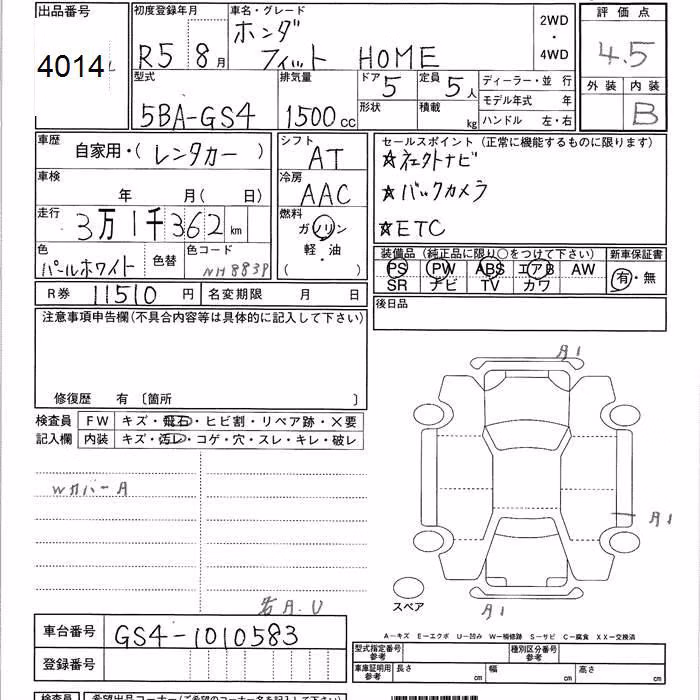 出品番号 初度登録年月 車名・グレード 2WD ・ 4WD 評価点
4014 R5 8月 ホンダ フィット HOME 4.5
型式 排気量 ドア 定員 ディーラー・並 行 外装 内装
5BA-GS4 1500cc 5 5人 モデル年式 年 B
形状 積載 kg ハンドル 左・右
車歴 自家用・(レンタカー) シフト AT セールスポイント(正常に機能するものに限ります)
車検 年 月(日) 冷房 AAC ☆ネクトナビ
☆バックカメラ
走行 3万1千362km 燃料 ガソリン ☆ETC
軽・油
( )
色 パールホワイト 色替 色コード NH883P 装備品(純正品に限り○をつけて下さい) 新車保証書
PS PW ABS エアB AW 有・無
SR ナビ TV カワ
R券 11510円 名変期限 月 日 後日品
注意事項申告欄(不具合内容等は具体的に記入して下さい)
修復歴 有 〔箇所 〕
検査員 FW キズ・飛石・ヒビ割・リペア跡・×要
記入欄 内装 キズ・汚レ・コゲ・穴・スレ・キレ・破レ
A1
WカバーA
A1
名A.U
スペア
A1
車台番号 GS4-1010583
A−キズ E−エクボ U−凹み W−補修跡 S−サビ C−腐食 XX−交換済
登録番号 型式指定番号 参考 種別区分番号 参考
車庫証明用 参考 長さ cm 幅 cm 高さ cm
検査員 希望出品コーナー(ご希望のコーナー名